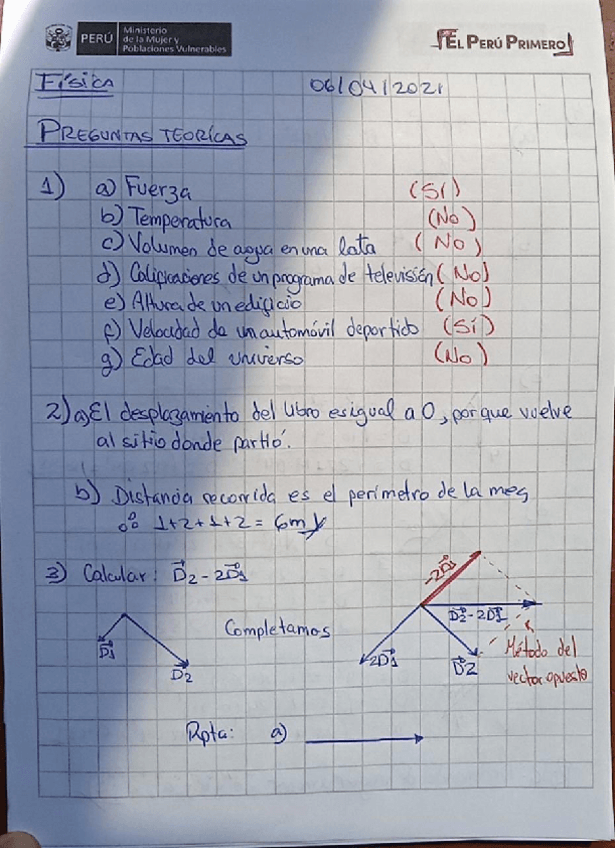 PERÚ
Ministerio
de la Mujer y
Poblaciones Vulnerables
EL PERÚ PRIMERO
Física 06/04/2021
PREGUNTAS TEORÍCAS
1) a) Fuerza (Sí)
b) Temperatura (No)
c) Volumen de agua en una lata (No)
d) Calificaciones de un programa de televisión (No)
e) Altura de un edificio (No)
f) Velocidad de un automóvil deportido (Sí)
g) Edad del universo (No)
2) a) El desplazamiento del libro es igual a 0, porque vuelve
al sitio donde partió.
b) Distancia recorrida es el perímetro de la mesa
∴ 1+2+1+2 = 6m
3) Calcular: D⃗2 - 2D⃗1
-2D⃗1
D⃗1
D⃗2
Completamos
D⃗2-2D⃗1
2D⃗1
D⃗2
Método del
vector opuesto
Rpta: a)